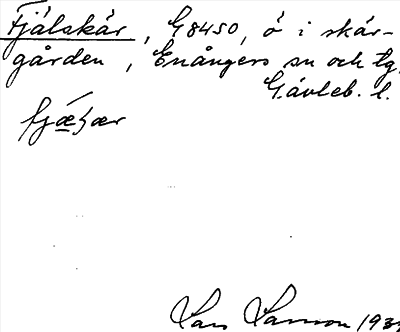 Fjälskär, G8450, ö i skär-
gården, Enångers sn och tg,
Gävleb. l.
Lars Larsson